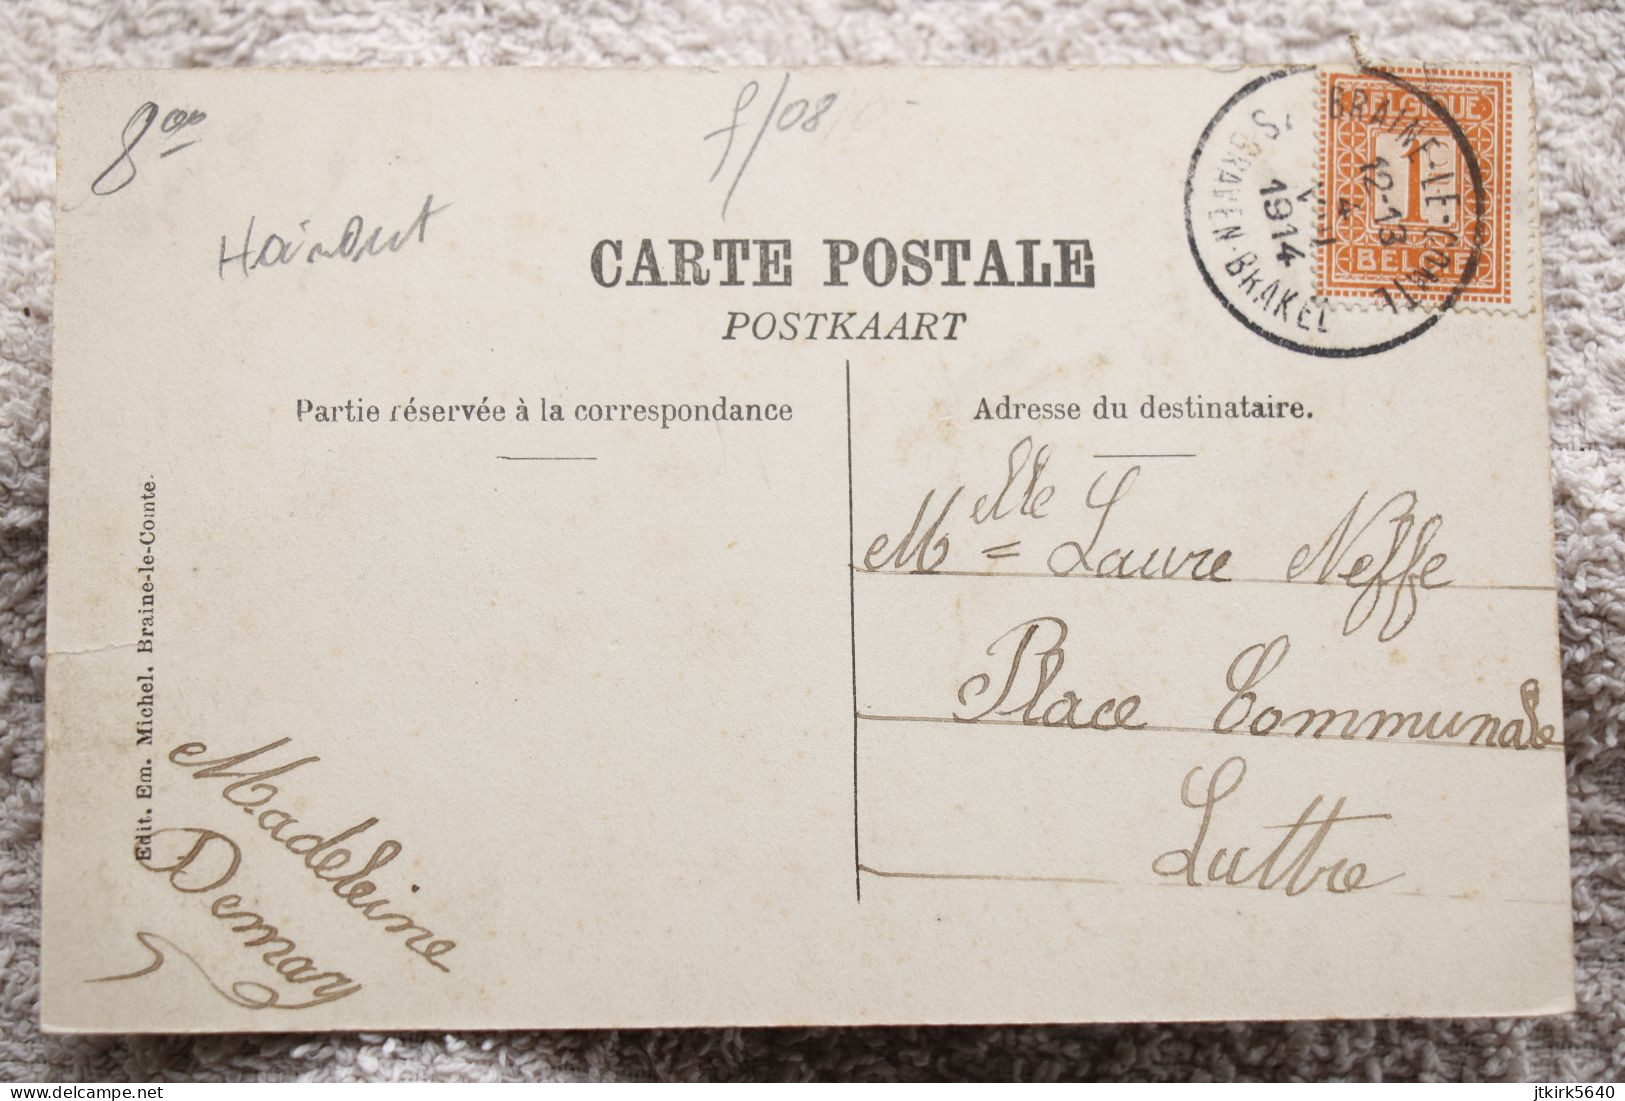 8,00
f/08
Hainaut
CARTE POSTALE
POSTKAART
Partie réservée à la correspondance
Adresse du destinataire.
BELGIQUE
1
BELGIË
BRAINE-LE-COMTE
12-13
4
VIII
1914
S GRAVEN-BRAKEL
Melle = Laure Neffe
Place Communale
Luttre
Edit. Em. Michel. Braine-le-Comte.
Madeleine
Demay
delcampe.net
jtkirk5640